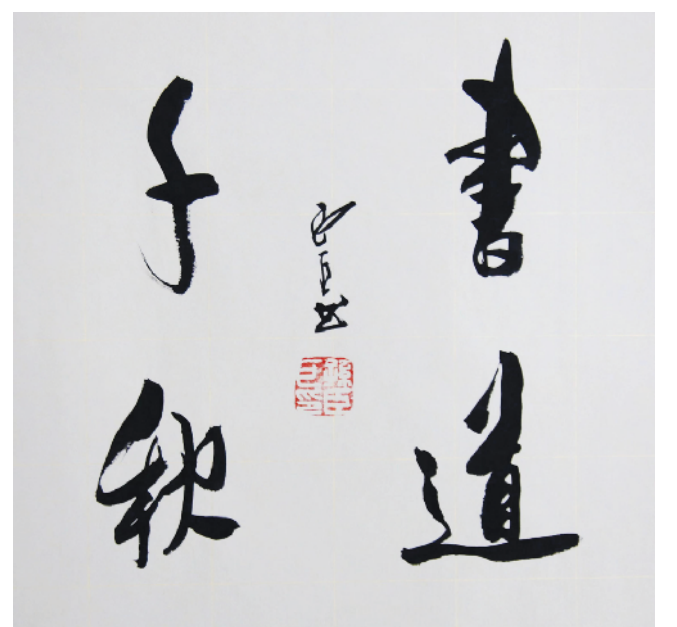 書道
千秋